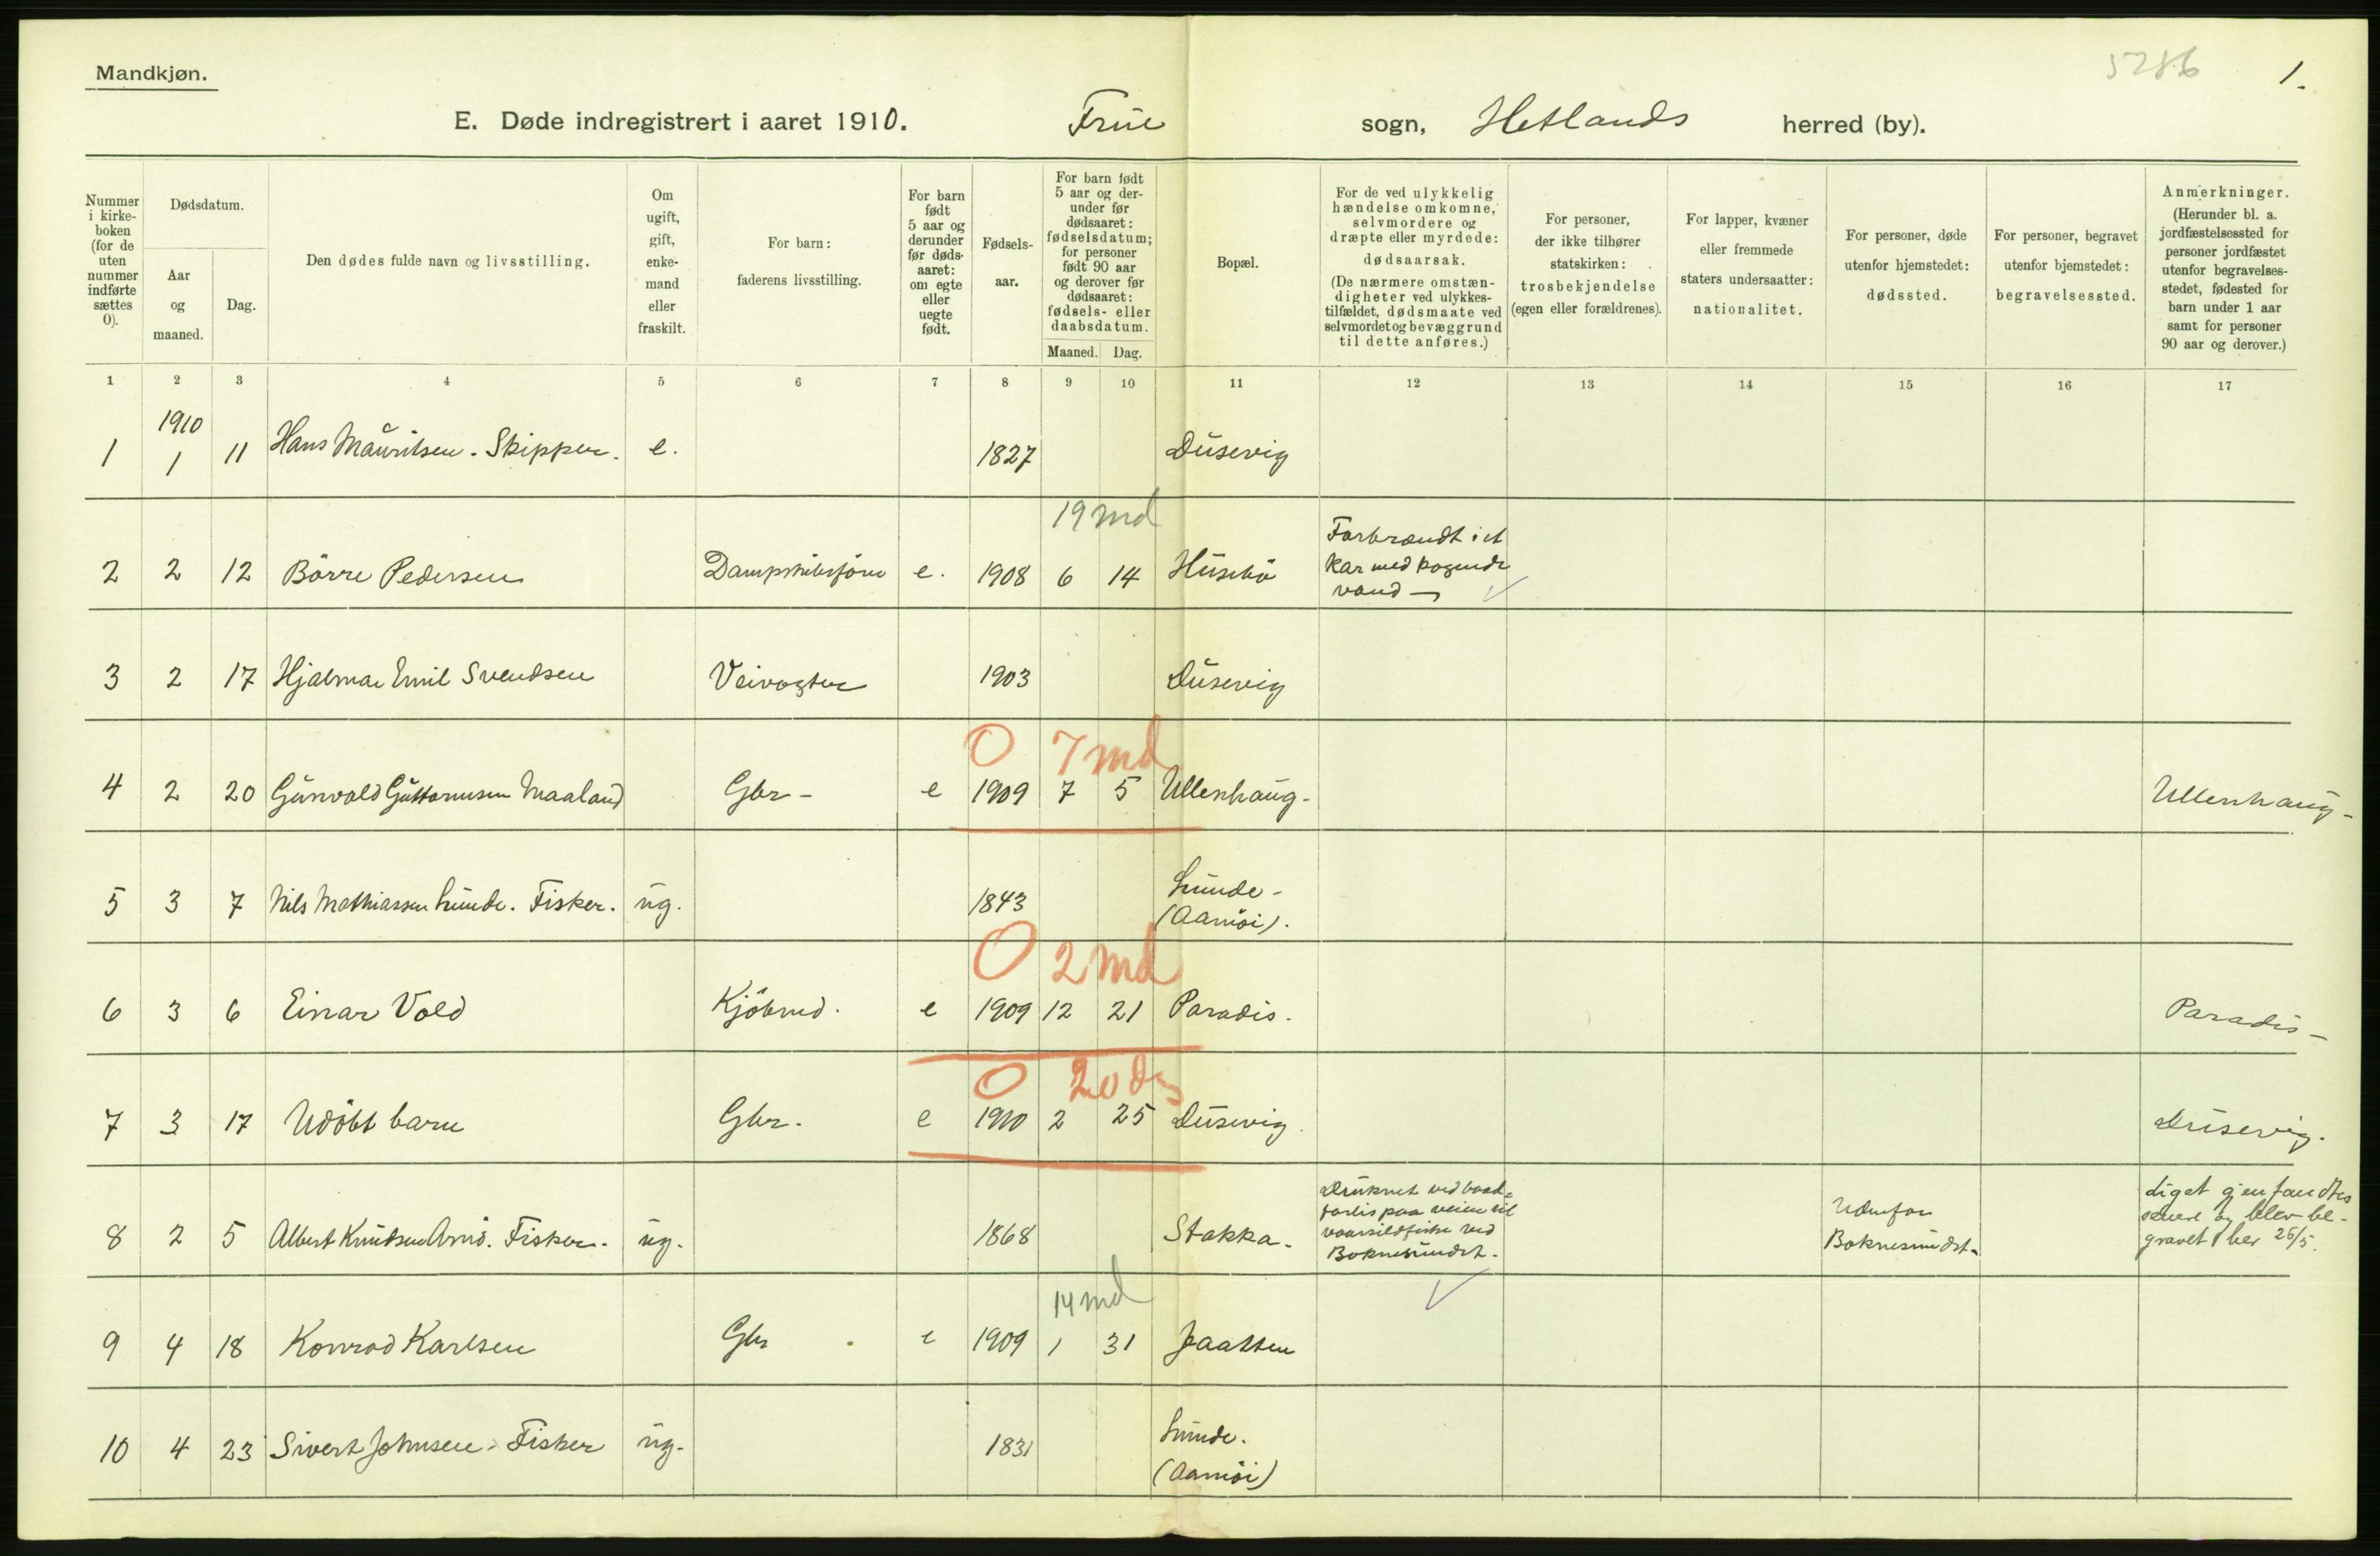 Mandkjøn.
5286
1.
E. Døde indregistrert i aaret 1910. Frue sogn, Hetlands herred (by).
Nummer i kirke-boken (for de uten nummer indførte sættes 0).
Dødsdatum.
Aar og maaned.
Dag.
Den dødes fulde navn og livsstilling.
Om ugift, gift, enke-mand eller fraskilt.
For barn: faderens livsstilling.
For barn født 5 aar og derunder før døds-aaret: om egte eller uegte født.
Fødsels-aar.
For barn født 5 aar og der-under før dødsaaret: fødselsdatum; for personer født 90 aar og derover før dødsaaret: fødsels- eller daabsdatum.
Maaned. Dag.
Bopæl.
For de ved ulykkelig hændelse omkomne, selvmordere og dræpte eller myrdede: dødsaarsak.
(De nærmere omstæn-digheter ved ulykkes-tilfældet, dødsmaate ved selvmordet og bevæggrund til dette anføres.)
For personer, der ikke tilhører statskirken: trosbekjendelse (egen eller forældrenes).
For lapper, kvæner eller fremmede staters undersaatter: nationalitet.
For personer, døde utenfor hjemstedet: dødssted.
For personer, begravet utenfor hjemstedet: begravelsessted.
Anmerkninger.
(Herunder bl. a. jordfæstelsessted for personer jordfæstet utenfor begravelses-stedet, fødested for barn under 1 aar samt for personer 90 aar og derover.)
1 2 3 4 5 6 7 8 9 10 11 12 13 14 15 16 17
1910
1 1 11 Hans Mauritsen. Skipper. e. 1827 Dusevig
19 md
2 2 12 Börre Pedersen Dampskibsförer e. 1908 6 14 Husebö Forbrændt i et
kar med kogende
vand —
3 2 17 Hjalmar Emil Svendsen Veivogter 1903 Dusevig
0 7 md
4 2 20 Gunvald Guttormsen Maaland Gbr - e 1909 7 5 Ullenhaug - Ullenhaug -
5 3 7 Nils Mathiassen Lunde. Fisker. ug. 1843 Lunde -
(Aamöi).
0 2 md
6 3 6 Einar Vold Kjöbmd. e 1909 12 21 Paradis. Paradis -
0 20 dg
7 3 17 Udöbt barn Gbr. e 1910 2 25 Dusevig. Dusevig.
8 2 5 Albert Knudsen Amö. Fisker. ug. 1868 Stokka. Druknet ved baad=
forlis paa veien til
vaarsildfiske ved
Boknesundet.
Udenfor
Boknesundet.
Liget gjenfandtes
senere og blev be-
gravet her 26/5.
14 md
9 4 18 Konrad Karlsen Gbr e 1909 1 31 Jaatten
10 4 23 Sivert Johnsen. Fisker ug. 1831 Lunde.
(Aamöi)